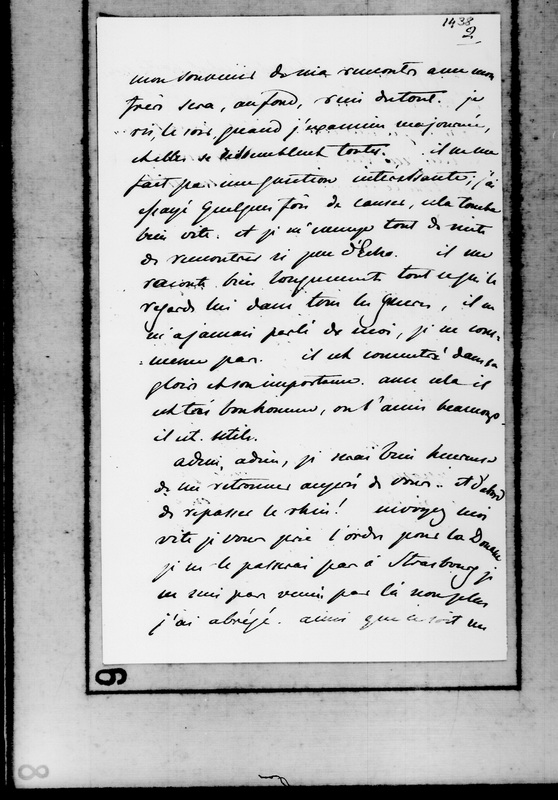 1438
2
mon souvenir de ma rencontre avec mon
frère sera, au fond, rien du tout. je
ris, le soir, quand j'examine ma journée,
et elles se ressemblent toutes. il ne me
fait pas une question intéressante, j'ai
essayé quelques fois de causer, cela tombe
bien vite. et je m'ennuye tout de suite
de rencontrer si peu d'Echo. il me
raconte bien longuement tout ce qui le
regarde lui dans tous les genres, il ne
m'a jamais parlé de moi, je ne com-
-mence pas. il est concentré dans sa
gloire et son importance. avec cela il
est très bon homme, on l'aime beaucoup.
il est utile.
adieu, adieu, je serai bien heureuse
de me retrouver auprès de vous. et d'abord
de repasser le rhin! envoyez moi
vite je vous prie l'ordre pour la Douane
je ne le passerai pas à Strasbourg je
ne suis pas venue par là non plus
j'ai abrégé. ainsi que ce soit un
6
8